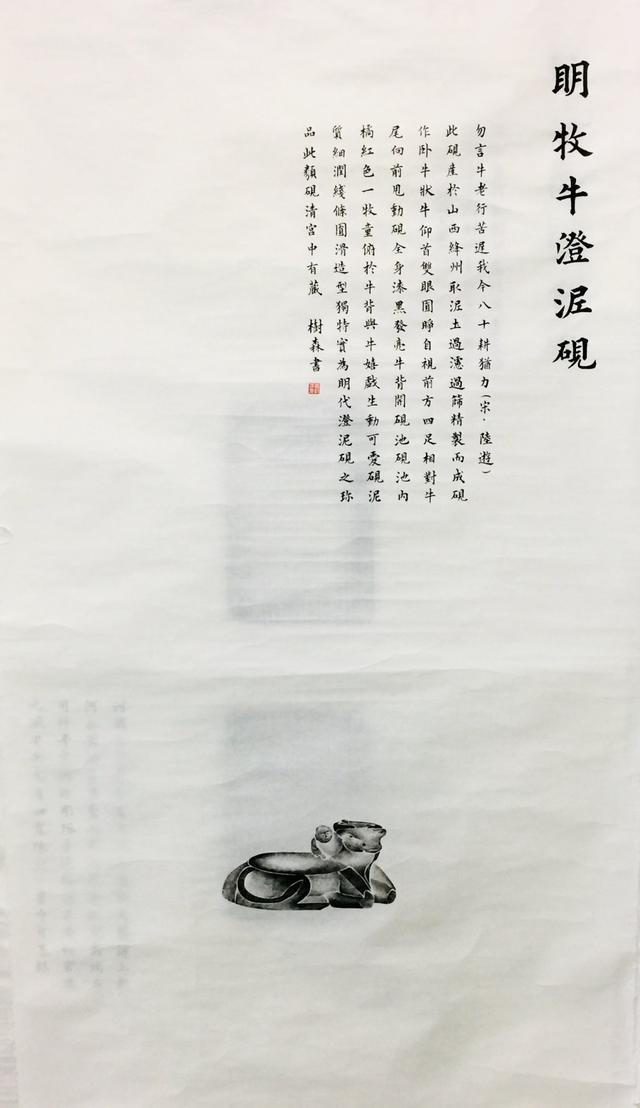 明牧牛澄泥硯
勿言牛老行苦遲我今八十耕猶力(宋·陸遊)
此硯産於山西絳州取泥土過濾過篩精製而成硯
作卧牛狀牛仰首雙眼圓睁自視前方四足相對牛
尾向前甩動硯全身漆黑發亮牛背開硯池硯池内
橘紅色一牧童俯於牛背與牛嬉戲生動可愛硯泥
質細潤綫條圓滑造型獨特實為明代澄泥硯之珎
品此類硯清宫中有藏 樹森書